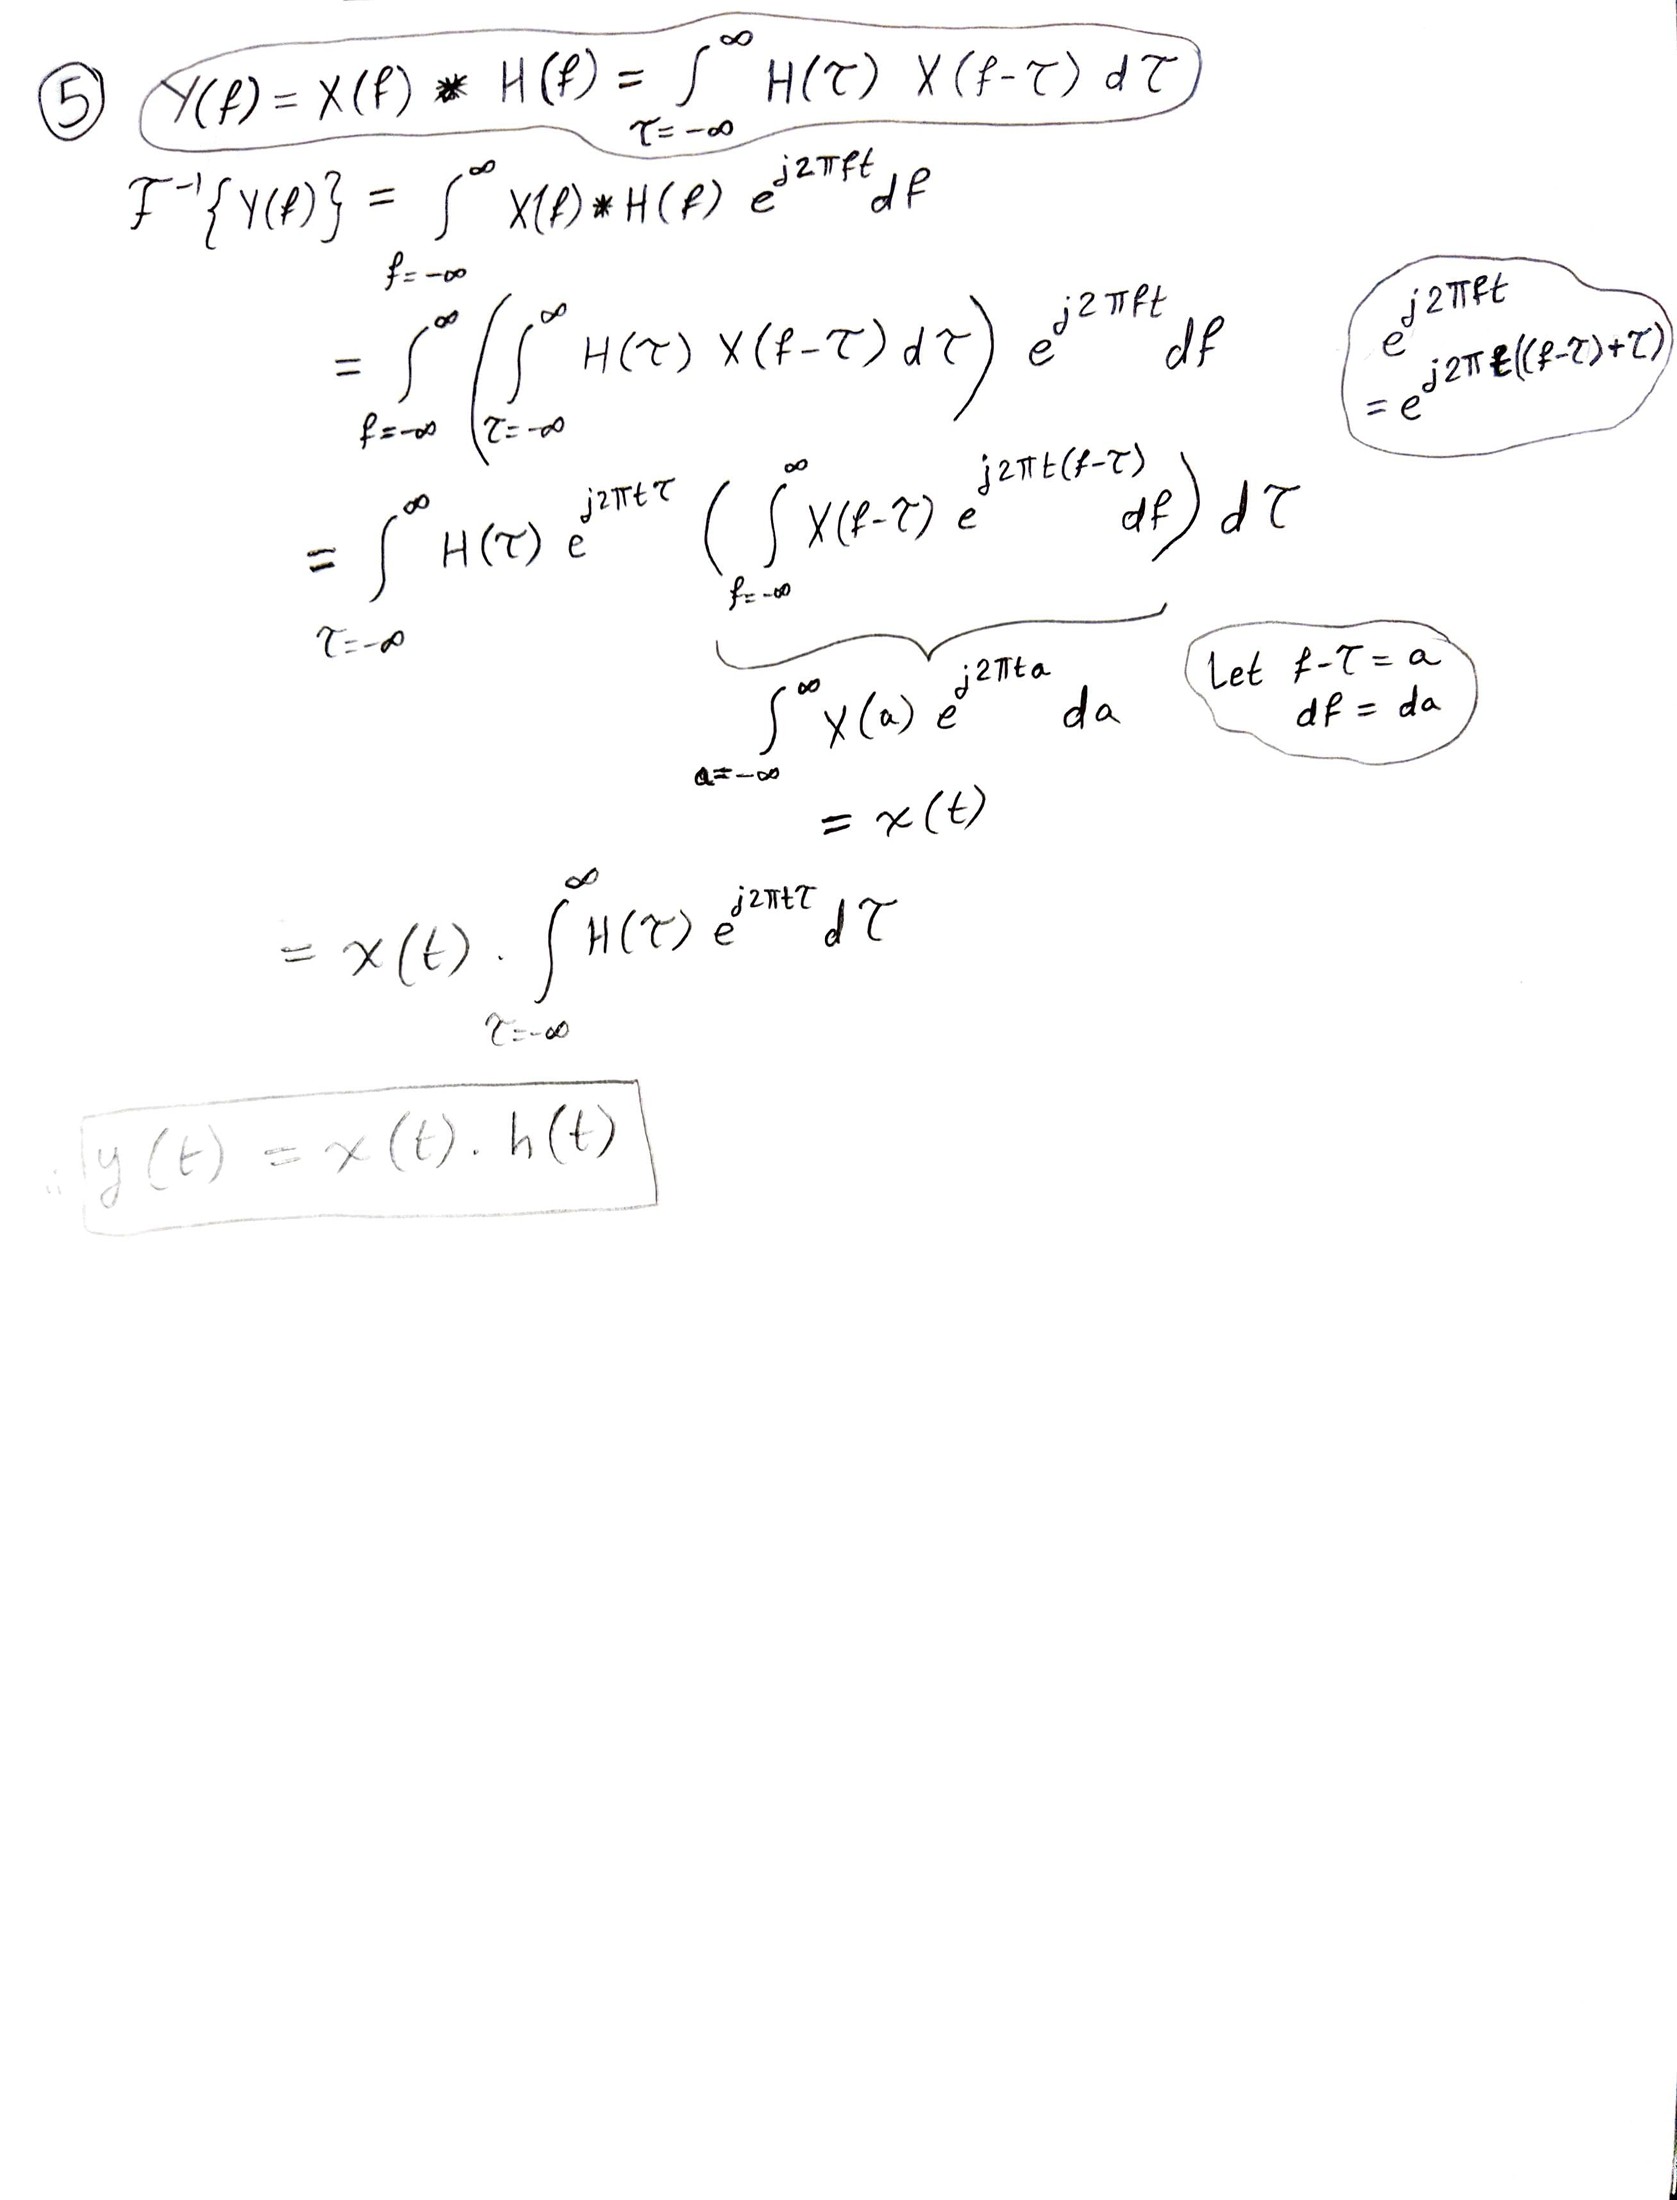 ⑤ Y(f) = X(f) * H(f) = ∫_{τ=-∞}^{∞} H(τ) X(f-τ) dτ
F⁻¹{Y(f)} = ∫_{f=-∞}^{∞} X(f) * H(f) e^{j2πft} df
= ∫_{f=-∞}^{∞} (∫_{τ=-∞}^{∞} H(τ) X(f-τ) dτ) e^{j2πft} df
e^{j2πft}
= e^{j2πt((f-τ)+τ)}
= ∫_{τ=-∞}^{∞} H(τ) e^{j2πtτ} (∫_{f=-∞}^{∞} X(f-τ) e^{j2πt(f-τ)} df) dτ
∫_{a=-∞}^{∞} X(a) e^{j2πta} da
Let f-τ = a
df = da
= x(t)
= x(t) . ∫_{τ=-∞}^{∞} H(τ) e^{j2πtτ} dτ
∴ y(t) = x(t) . h(t)